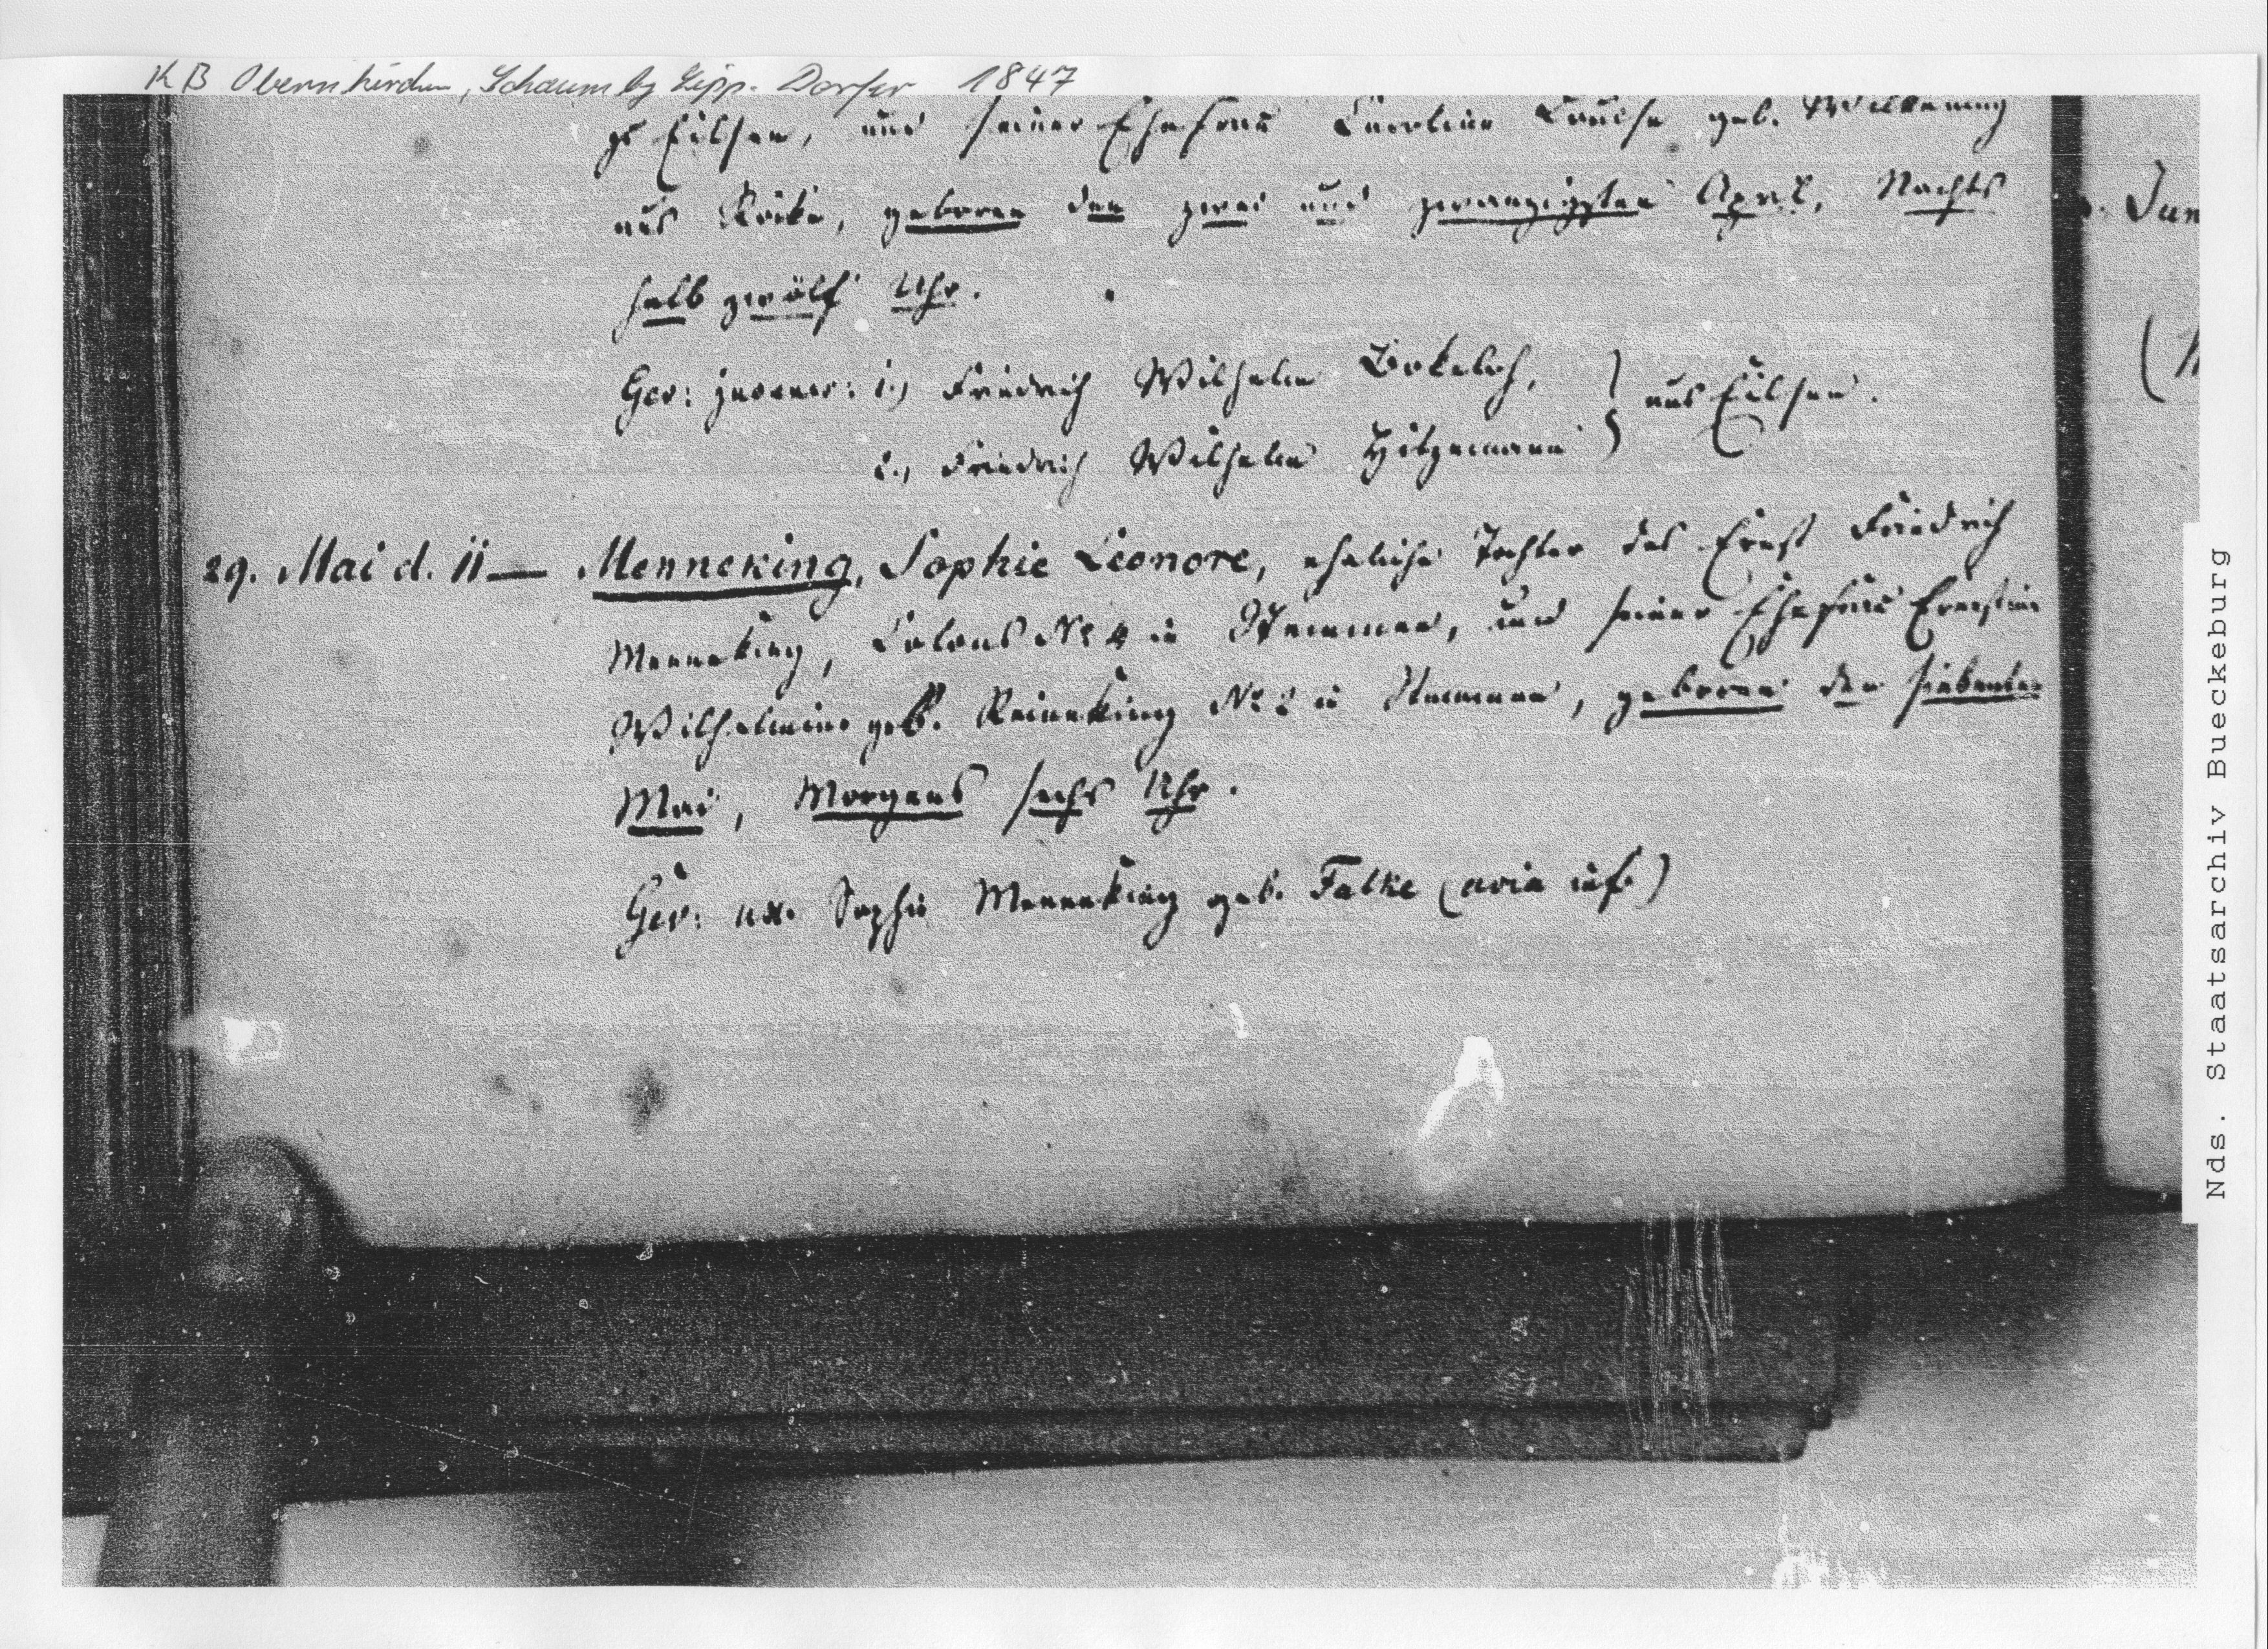 KB Obernkirchen, Schaumbg Lipp. Dörfer 1847
zu Eilsen, und seiner Ehefrau Caroline Louise geb. Wilkening
aus Röcke, geboren den zwei und zwanzigsten April, Nachts
halb zwölf Uhr.
Gev: 1.) Friedrich Wilhelm Bokeloh,
2.) Friedrich Wilhelm Hitzemann } aus Eilsen.
29. Mai d. 11 — Menneking, Sophie Leonore, eheliche Tochter des Ernst Friedrich
Menneking, Colons No 4 in Stemmen, und seiner Ehefrau Ernestine
Wilhelmine geb. Reineking No 2 in Stemmen, geboren den siebenten
Mai, Morgens sechs Uhr.
Gev: ux. Sophie Menneking geb. Falke (avia inf.)
Jun
Nds. Staatsarchiv Bueckeburg